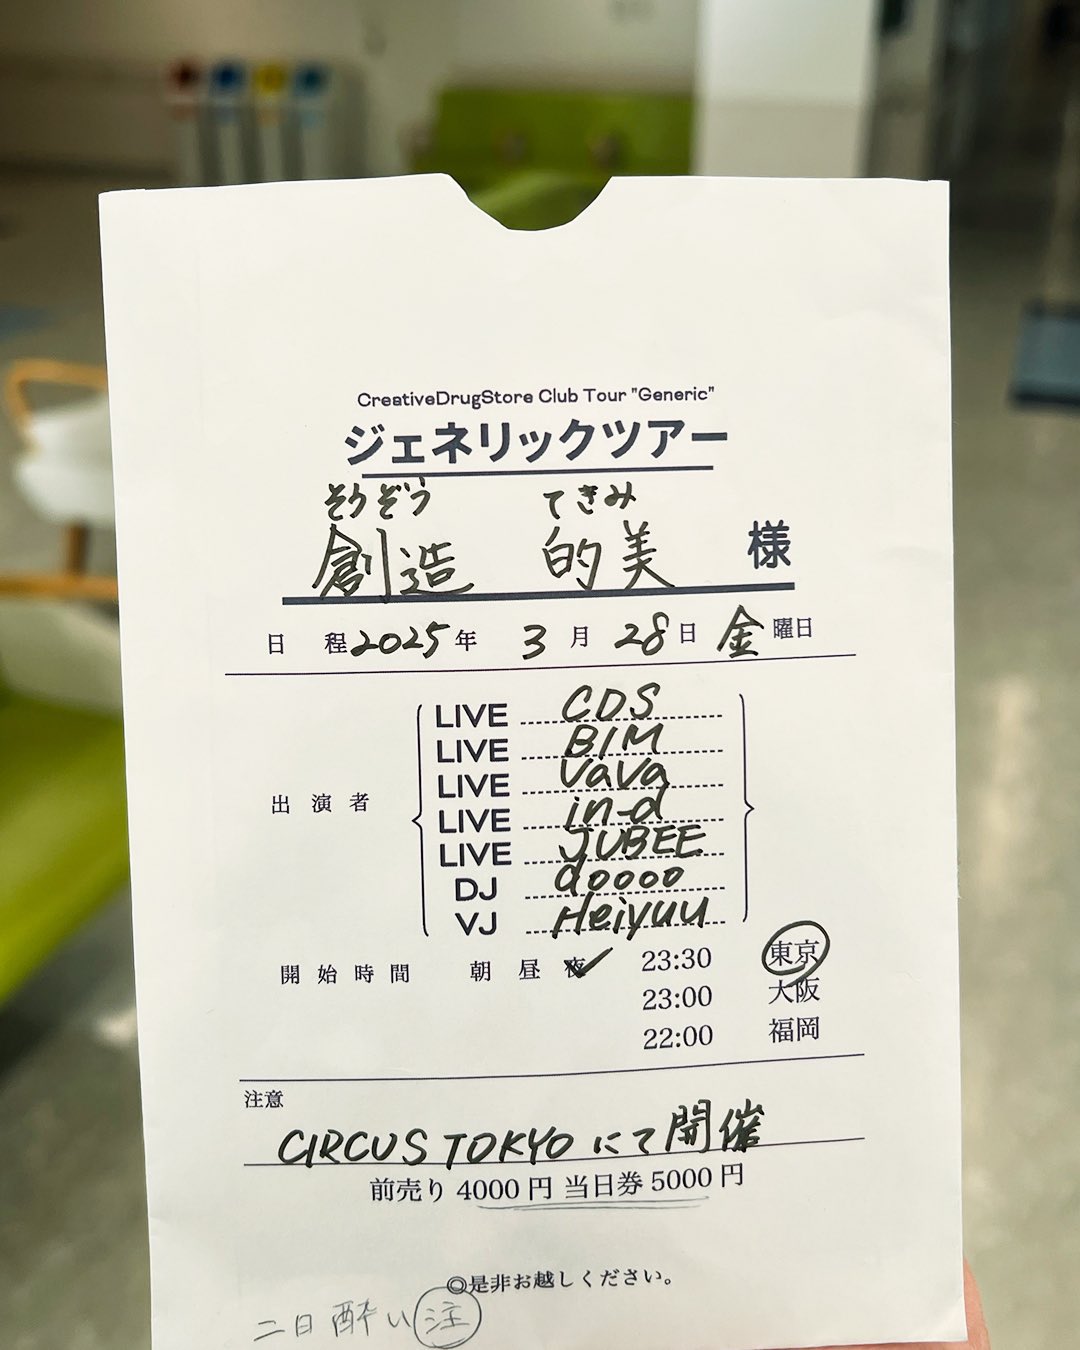 CreativeDrugStore Club Tour "Generic"
ジェネリックツアー
そうぞう てきみ
創造 的美 様
日 程 2025 年 3 月 28 日 金 曜日
出 演 者
LIVE CDS
LIVE BIM
LIVE VaVa
LIVE in-d
LIVE JUBEE
DJ doooo
VJ Heiyuu
開 始 時 間 朝 昼 夜 23:30 東京
23:00 大阪
22:00 福岡
注意
CIRCUS TOKYO にて開催
前売り 4000 円 当日券 5000 円
◎是非お越しください。
二日酔い 注